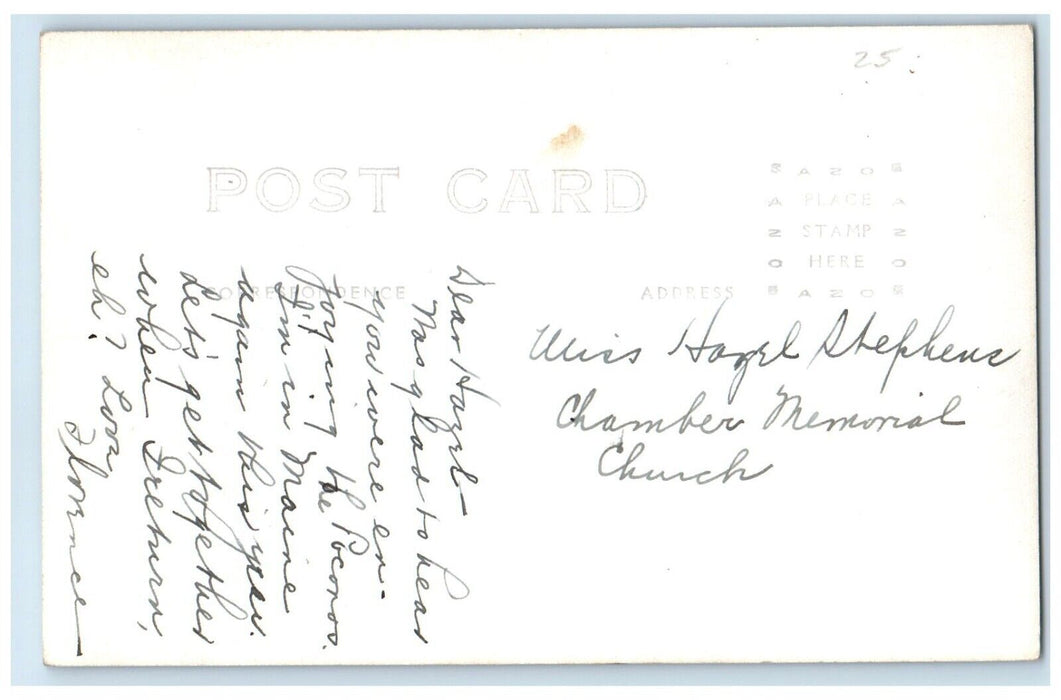 25
POST CARD
AZO
PLACE
STAMP
HERE
AZO
CORRESPONDENCE
ADDRESS
Dear Hazel—
Was glad to hear
you were en-
joying the Poconos.
I'm in Maine
again this year.
Let's get together
when I return,
eh? Love
Florence—
Miss Hazel Stephens
Chamber Memorial
Church